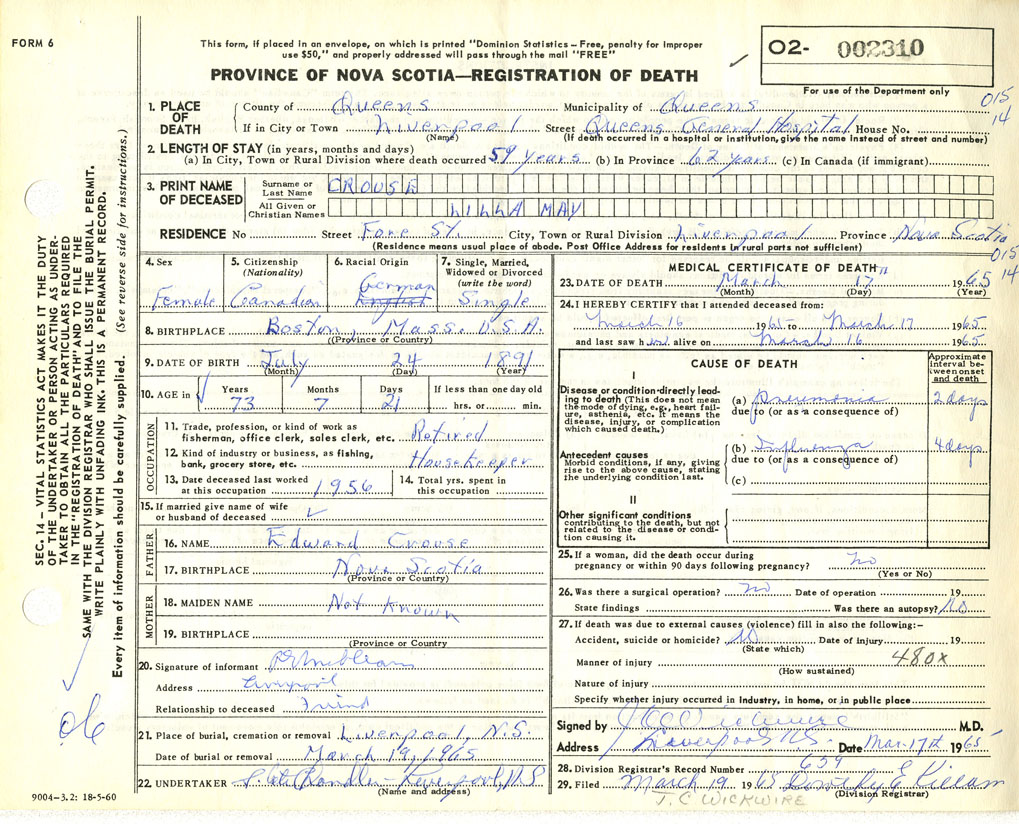 FORM 6
This form, if placed in an envelope, on which is printed "Dominion Statistics – Free, penalty for improper
use $50," and properly addressed will pass through the mail "FREE"
PROVINCE OF NOVA SCOTIA—REGISTRATION OF DEATH
O2- 002310
For use of the Department only
015
14
1. PLACE OF DEATH
County of Queens Municipality of Queens
If in City or Town Liverpool Street Queens General Hospital House No.
(Name) (If death occurred in a hospital or institution, give the name instead of street and number)
2. LENGTH OF STAY (in years, months and days)
(a) In City, Town or Rural Division where death occurred 59 years (b) In Province 62 years (c) In Canada (if immigrant)
3. PRINT NAME OF DECEASED
Surname or Last Name CROUSE
All Given or Christian Names LILLA MAY
RESIDENCE No Street Fore St. City, Town or Rural Division Liverpool Province Nova Scotia
(Residence means usual place of abode. Post Office Address for residents in rural parts not sufficient)
015
14
4. Sex Female
5. Citizenship (Nationality) Canadian
6. Racial Origin German English
7. Single, Married, Widowed or Divorced (write the word) Single
8. BIRTHPLACE Boston, Mass. U.S.A.
((Province or Country)
9. DATE OF BIRTH July 24 1891
(Month) (Day) (Year)
10. AGE in Years 73 Months 7 Days 21 If less than one day old hrs. or min.
OCCUPATION
11. Trade, profession, or kind of work as fisherman, office clerk, sales clerk, etc. Retired
12. Kind of industry or business, as fishing, bank, grocery store, etc. Housekeeper
13. Date deceased last worked at this occupation 1956
14. Total yrs. spent in this occupation
15. If married give name of wife or husband of deceased
FATHER
16. NAME Edward Crouse
17. BIRTHPLACE Nova Scotia
(Province or Country)
MOTHER
18. MAIDEN NAME Not known
19. BIRTHPLACE
(Province or Country
20. Signature of informant
Address Liverpool
Relationship to deceased Friend
21. Place of burial, cremation or removal Liverpool, N.S.
Date of burial or removal March 19, 1965
22. UNDERTAKER Liverpool, N.S
(Name and address)
9004-3.2: 18-5-60
MEDICAL CERTIFICATE OF DEATH
23. DATE OF DEATH March 17 1965
(Month) (Day) (Year)
24. I HEREBY CERTIFY that I attended deceased from:
March 16 1965 to March 17 1965
and last saw her alive on March 16 1965
CAUSE OF DEATH
Approximate interval between onset and death
I
Disease or condition directly leading to death (This does not mean the mode of dying, e.g., heart failure, asthenia, etc. It means the disease, injury, or complication which caused death.)
(a) Pneumonia 2 days
due to (or as a consequence of)
Antecedent causes
Morbid conditions, if any, giving rise to the above cause, stating the underlying condition last.
(b) Influenza 4 days
due to (or as a consequence of)
(c)
II
Other significant conditions contributing to the death, but not related to the disease or condition causing it.
25. If a woman, did the death occur during pregnancy or within 90 days following pregnancy? no
(Yes or No)
26. Was there a surgical operation? no Date of operation 19
State findings Was there an autopsy? No
27. If death was due to external causes (violence) fill in also the following:–
Accident, suicide or homicide? No Date of injury 19
(State which)
Manner of injury 480x
(How sustained)
Nature of injury
Specify whether injury occurred in Industry, in home, or in public place
Signed by J C Wickwire M.D.
Address Liverpool N.S. Date Mar. 17th 1965
28. Division Registrar's Record Number 659
29. Filed March 19 1965 Dorothy E Killam
(Division Registrar)
J. C WICKWIRE
SEC. 14 – VITAL STATISTICS ACT MAKES IT THE DUTY
OF THE UNDERTAKER OR PERSON ACTING AS UNDER-
TAKER TO OBTAIN ALL THE PARTICULARS REQUIRED
IN THE "REGISTRATION OF DEATH" AND TO FILE THE
SAME WITH THE DIVISION REGISTRAR WHO SHALL ISSUE THE BURIAL PERMIT.
WRITE PLAINLY WITH UNFADING INK. THIS IS A PERMANENT RECORD.
Every item of information should be carefully supplied. (See reverse side for instructions.)
06